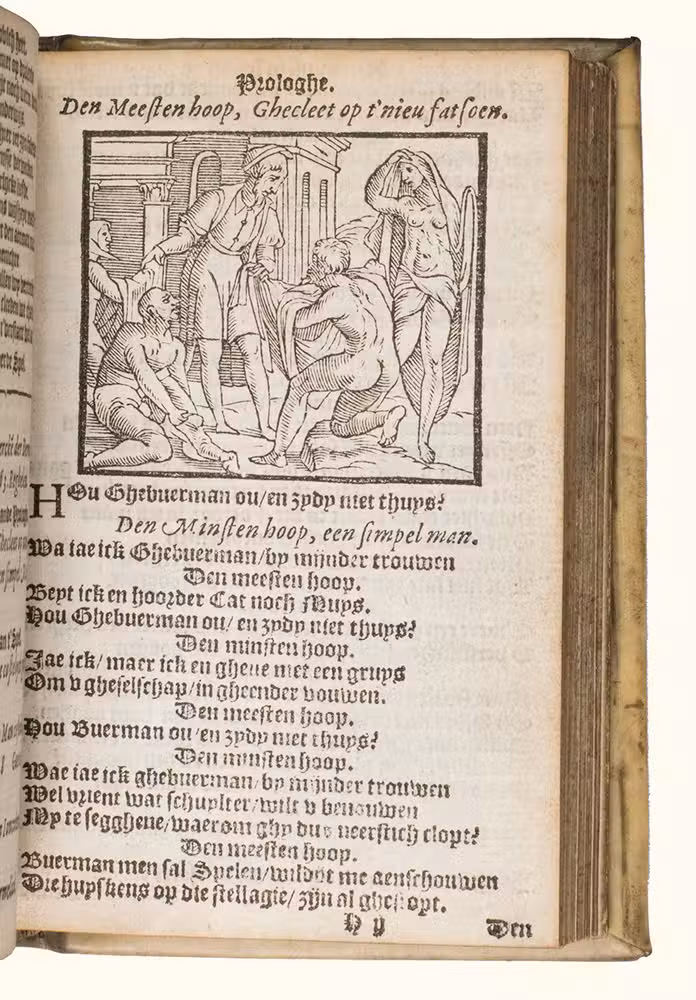 Prologhe.
Den Meesten hoop, Ghecleet op t'nieu fatsoen.
HOu Ghebuerman ou/en zydy niet thuys?
Den Minsten hoop, een simpel man.
Wa iae ick Ghebuerman/by mijnder trouwen
Den meesten hoop.
Beyt ick en hoorder Cat noch Muys.
Hou Ghebuerman ou/ en zydy niet thuys?
Den minsten hoop.
Jae ick/ maer ick en gheue niet een gruys
Om v gheselschap/in gheender vouwen.
Den meesten hoop.
Hou Buerman ou/en zydy niet thuys?
Den minsten hoop.
Wae iae ick ghebuerman/by mijnder trouwen
Wel vrient wat schuylter/wilt v benouwen
My te segghene/waerom ghy dus neerstich clopt?
Den meesten hoop.
Buerman men sal Spelen/wildijt me aenschouwen
Die huyskens op die stellagie/ zijn al ghestopt.
H y
Den